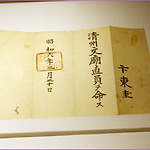 卞東圭
清州文廟直員ヲ命ス
昭和六年三月三十日